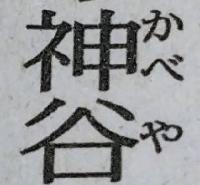 神谷
かべや